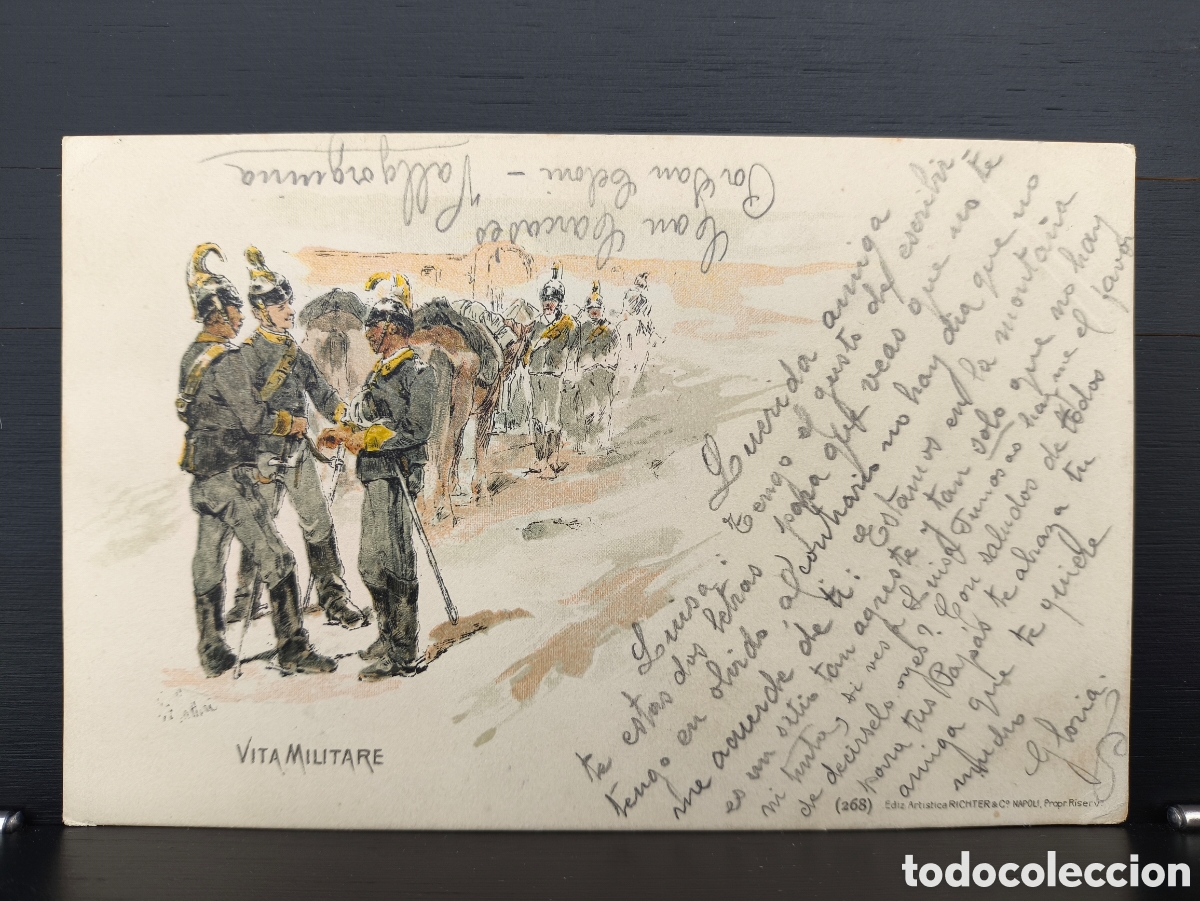 Can Barcadés
Por San Celoni -
Vallgorguina
Querida amiga
Luisa: Tengo el gusto de escribir-
te estas dos letras para que veas que no te
tengo en olvido al contrario no hay dia que no
me acuerde de ti: Estamos en la montaña
es un sitio tan agreste y tan solo que no hay
ni tinta, si ves a Luisa Tunosas hazme el favor
de decirselo oyes? Con saludos de todos
para tus Papás te abraza tu
amiga que te quiere
mucho
Gloria.
VITA MILITARE
(268) Ediz. Artistica RICHTER & Cº NAPOLI, Propr. Riserv.
todocoleccion